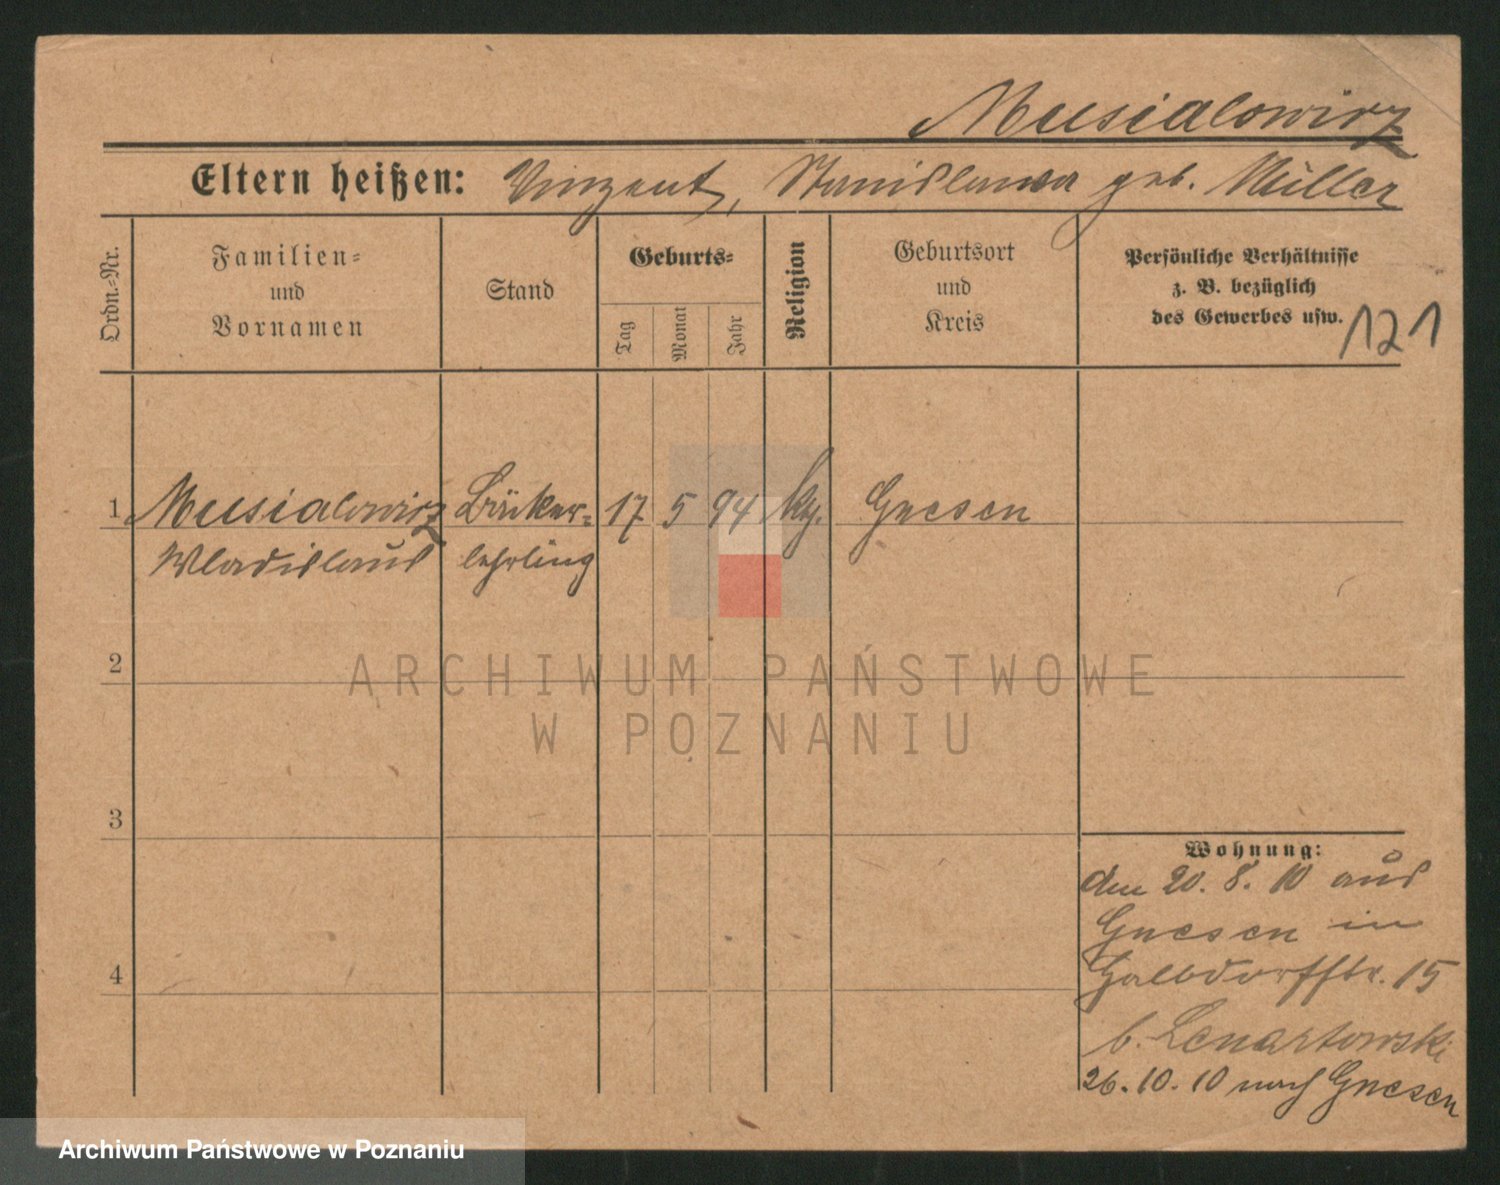 Musialowicz
Eltern heißen: Vinzent, Stanislawa geb. Müller
Ordn.-Nr.
Familien-
und
Vornamen
Stand
Geburts-
Tag
Monat
Jahr
Religion
Geburtsort
und
Kreis
Persönliche Verhältnisse
z. B. bezüglich
des Gewerbes usw.
121
1 Musialowicz Bäcker- 17 5 94 kth. Gnesen
Wladislaus lehrling
2
3
4
Wohnung:
den 20. 8. 10 aus
Gnesen in
Halbdorfstr. 15
b. Lenartowski
26. 10. 10 nach Gnesen
ARCHIWUM PAŃSTWOWE
W POZNANIU
Archiwum Państwowe w Poznaniu